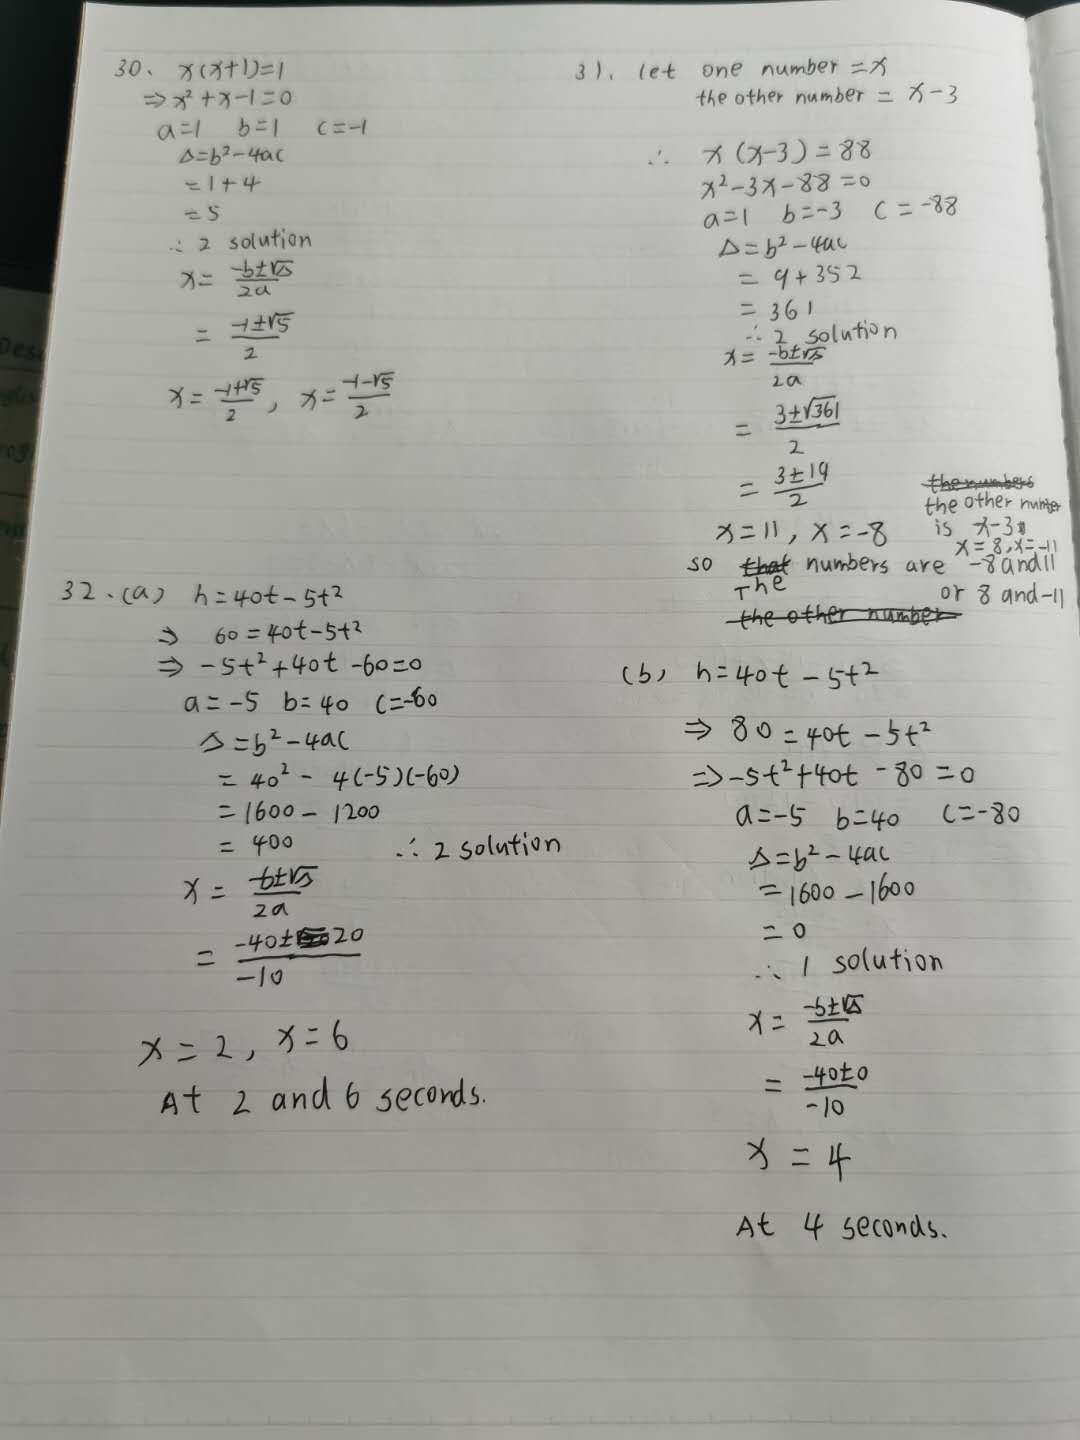 30、 x(x+1)=1
⇒x²+x-1=0
a=1 b=1 c=-1
Δ=b²-4ac
=1+4
=5
∴ 2 solution
x= (-b±√Δ)/2a
= (-1±√5)/2
x= (-1+√5)/2, x= (-1-√5)/2
31. let one number =x
the other number = x-3
∴ x(x-3)=88
x²-3x-88=0
a=1 b=-3 c=-88
Δ=b²-4ac
= 9+352
= 361
∴ 2 solution
x= (-b±√Δ)/2a
= (3±√361)/2
= (3±19)/2
x=11, x=-8
the numbers
the other number
is x-3
x=8,x=-11
so that numbers are -8 and 11
The
or 8 and -11
the other number
32.(a) h=40t-5t²
⇒ 60=40t-5t²
⇒ -5t²+40t-60=0
a=-5 b=40 c=-60
Δ=b²-4ac
=40²-4(-5)(-60)
=1600-1200
=400 ∴ 2 solution
x= (-b±√Δ)/2a
= (-40±20)/-10
x=2, x=6
At 2 and 6 seconds.
(b) h=40t-5t²
⇒ 80=40t-5t²
⇒-5t²+40t-80=0
a=-5 b=40 c=-80
Δ=b²-4ac
=1600-1600
=0
∴ 1 solution
x= (-b±√Δ)/2a
= (-40±0)/-10
x=4
At 4 seconds.